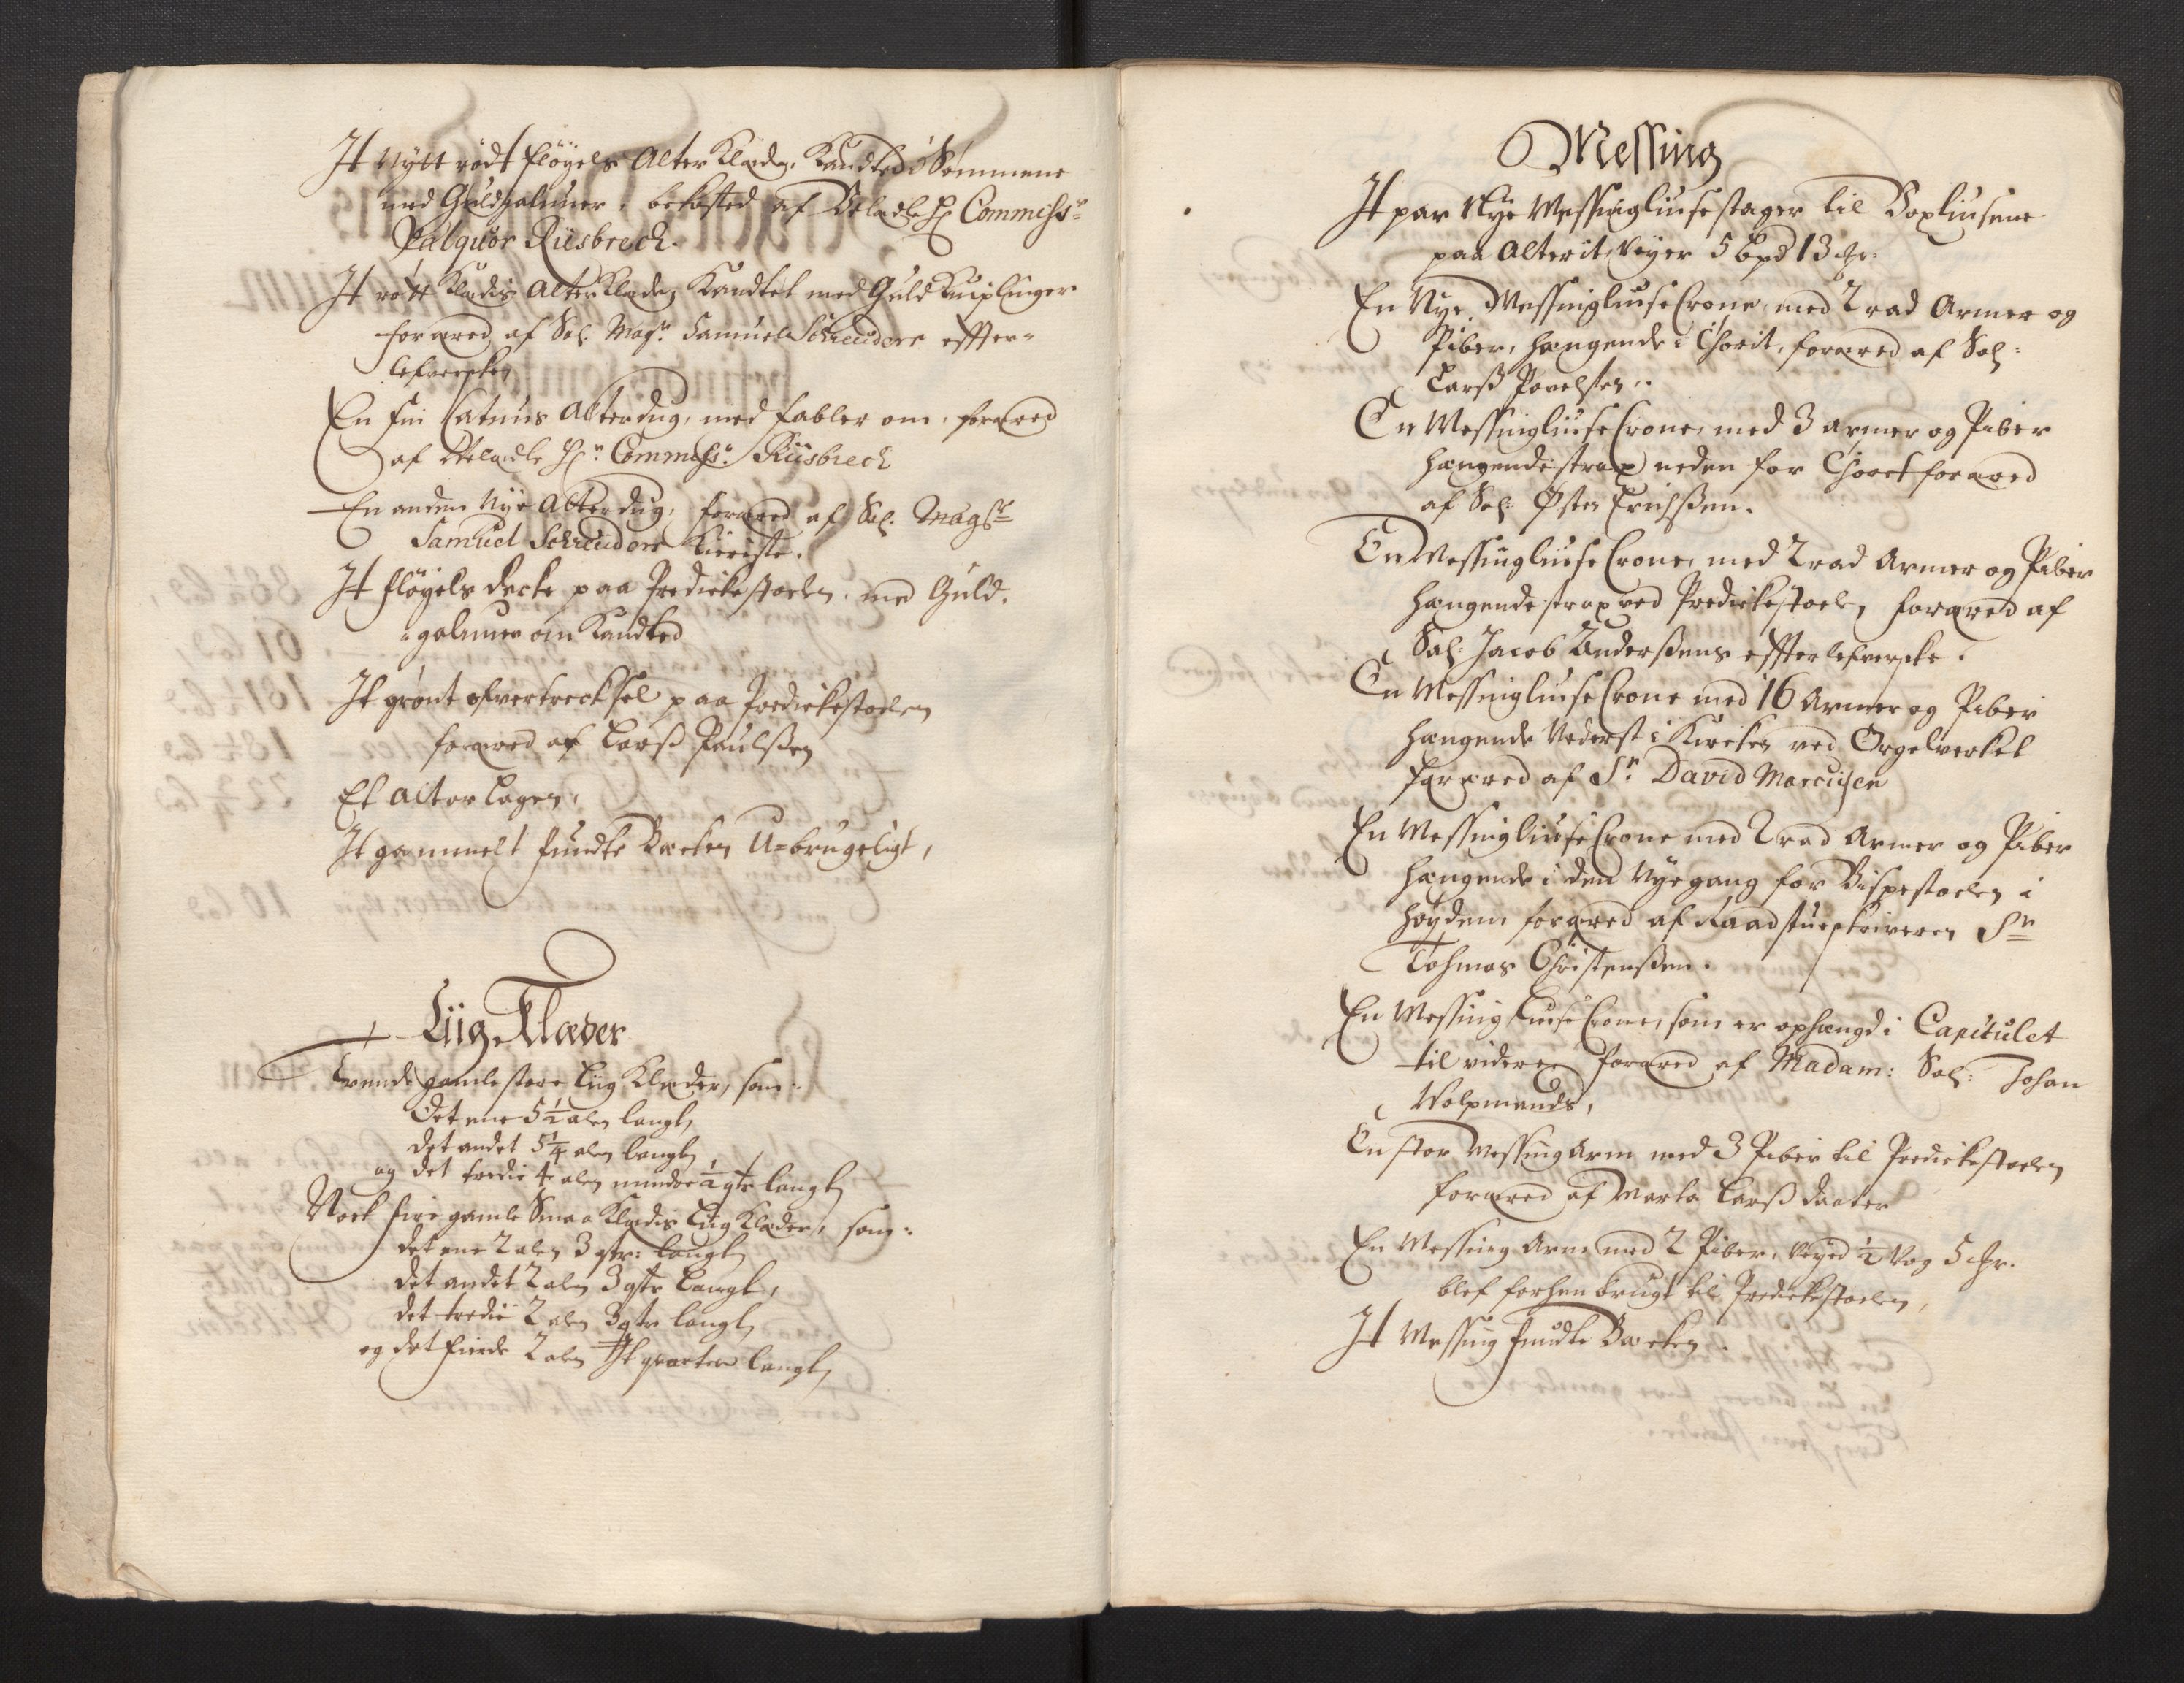 It nÿtt rödt fløyels Alter Klæde, Kandted i Sømmene
med Guldgaluner, bekosted af Velædle Hr Commissr
Palquør Riisbrech.
It rött Klædis Alter Klæde, Kandtet med Guld Kniplinger
foræred af Sal. Magr. Samuel Schreuders effter-
lefverske
En fin Catuns Alterdug, med Fabler om, foræred
af Velædle Hr. Commissr. Riisbrech
En anden Nÿe Alterdug, foræred af Sal. Magr
Samuel Schreuders Kiereste.
It fløyels decke paa Predickestoelen, med Guld-
galuner om Kandted
It grønt ofvertrecksel paa Predickestoelen
foræred af Larss Paulssen
Et altar Lagen,
It gammelt fundte Becken U=brugeligt,
Liig Klæder
Trende gamle store Liig Klæder, som:
Det ene 5 1/2 alen langt,
det andet 5 1/4 alen langt,
og det tredie 4 alen mindre 1/2 qtr langt,
Nock fire gamle Smaa Klædis Liig Klæder, som:
det ene 2 alen 3 qtr: langt,
det andet 2 alen 3 qtr langt,
det tredie 2 alen 3 qtr langt,
og det fierde 2 alen It qvarter langt,
Messing
It par Nÿe Messing liusestager til Voxliusene
paa Alterit, veyer 5 Bpd 13 Mr.
En Nÿe Messing liuse Crone, med 2 rad Armer og
Piber, hængende i Chorit, foræred af Sal:
Larss Povelsen.
En Messing liuse Crone, med 3 armer og Piber
hængende strax neden for Choret foræred
af Sal: Østen Erichssen.
En Messing liuse Crone, med 2 rad Armer og Piber
hængende strax ved Predickestoelen, foræred af
Sal: Jacob Anderssens effterlefverske.
En Messing liuse Crone med 16 Armer og Piber
hængende Nederst i Kircken ved Orgelverket
foræred af Sr. David Marcusen
En Messing liuse Crone med 2 rad Armer og Piber
hængende i den Nÿe gang for Bispestoelen i
høyden, foræred af Raadstueskriveren Sr
Tohmas Christenssen.
En Messing Liuse Crone, som er ophængd i Capitulet
til videre foræred af Madam: Sal: Johan
Volpmands,
En stor Messing Arm med 3 Piber til Predickestoelen
foræred af Marta Larss daater
En Messing Arm med 2 Piber, Veyed 1/2 Vog 5 Mr.
blef forhen brugt til Predickestoelen,
It Messing funдte Becken.